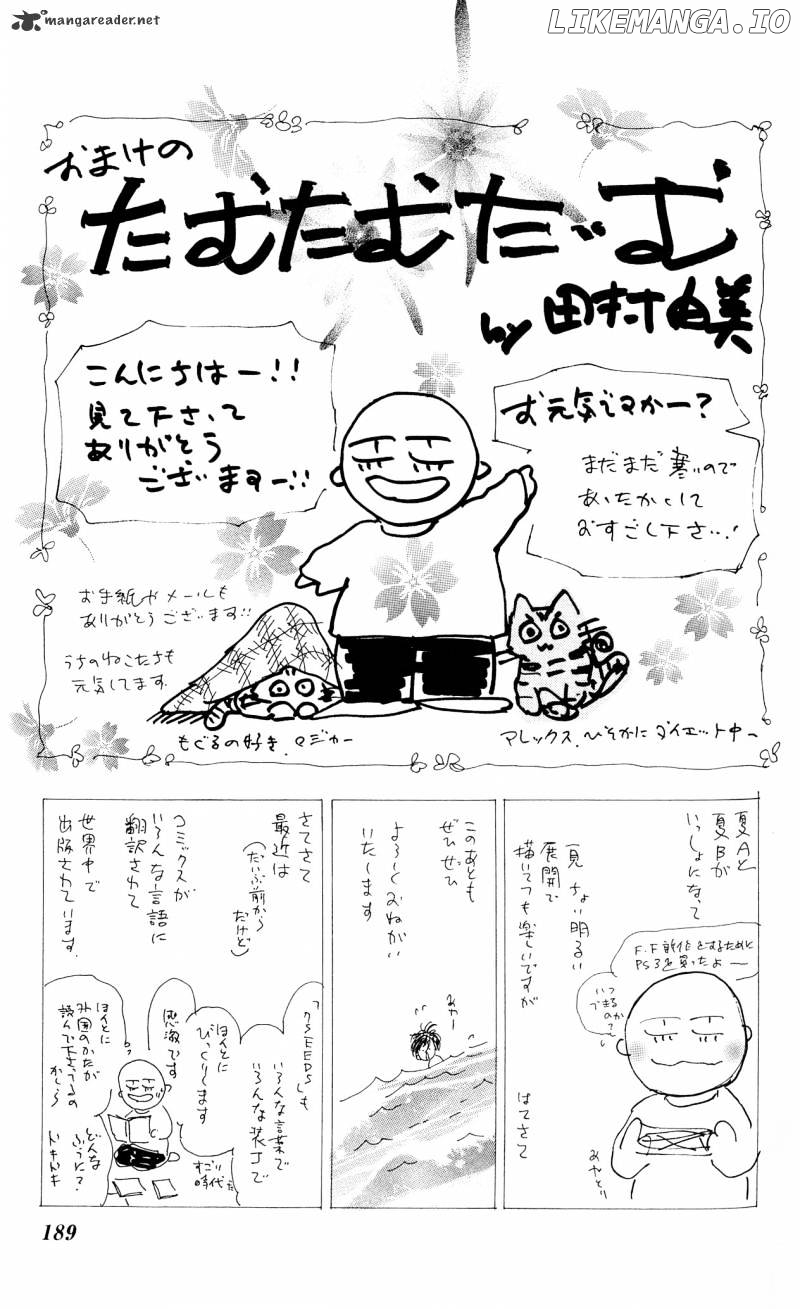 mangareader.net
LIKEMANGA.IO
おまけの
たむたむたーむ
by 田村由美
こんにちはー!!
見て下さって
ありがとう
ございますー!!
お元気ですかー?
まだまだ寒いので
あったかくして
おすごし下さい!
お手紙やメールも
ありがとうございます!!
うちのねこたちも
元気してます
もぐるの好き、マジカー
アレックス、ひそかにダイエット中ー
夏Aと
夏Bが
いっしょになって
一見ちょい明るい
展開で
描いてても楽しいですが
はてさて
F.F新作をするために
PS3を買ったよー
いつ
できるのか?
みやとり
このあとも
ぜひぜひ
よろしくおねがい
いたします
みゃー
さてさて
最近は
(だいぶ前から
だけど)
コミックスが
いろんな言語に
翻訳されて
世界中で
出版されています
「7SEEDS」も
いろんな言葉で
いろんな装丁で
ほんとに
びっくりします
感激です
すごい
時代だ
ほんとに
外国のかたが
読んで下さってるの
かしら
どんな
ふうに?
ドキドキ
189